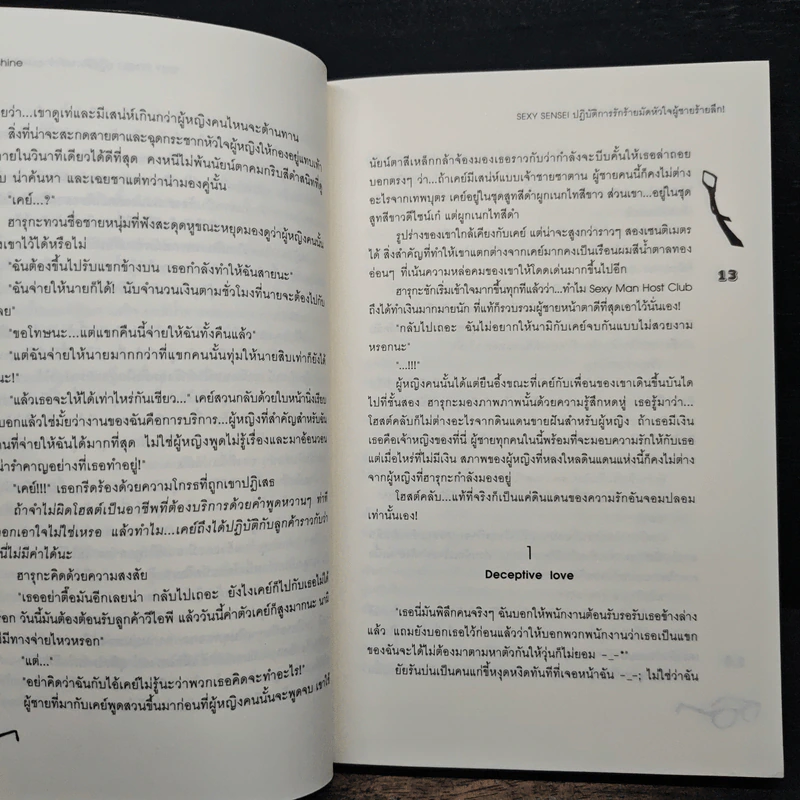 hine
ยว่า...เขาดูเท่และมีเสน่ห์เกินกว่าผู้หญิงคนไหนจะต้านทาน
สิ่งที่น่าจะสะกดสายตาและฉุดกระชากหัวใจผู้หญิงให้กองอยู่แทบเท้า
ายในวินาทีเดียวได้ดีที่สุด คงหนีไม่พ้นนัยน์ตาคมกริบสีดำสนิทที่ดู
บ น่าค้นหา และเฉยชาแต่ทว่าน่ามองคู่นั้น
"เคย์...?"
ฮารุกะทวนชื่อชายหนุ่มที่ฟังสะดุดหูขณะหยุดมองดูว่าผู้หญิงคนนั้น
งเขาไว้ได้หรือไม่
"ฉันต้องขึ้นไปรับแขกข้างบน เธอกำลังทำให้ฉันสายนะ"
"ฉันจ่ายให้นายก็ได้! นับจำนวนเงินตามชั่วโมงที่นายจะต้องไปกับ
ลย"
"ขอโทษนะ...แต่แขกคืนนี้จ่ายให้ฉันทั้งคืนแล้ว"
"แต่ฉันจ่ายให้นายมากกว่าที่แขกคนนั้นทุ่มให้นายสิบเท่าก็ยังได้
นะ!"
"แล้วเธอจะให้ได้เท่าไหร่กันเชียว..." เคย์สวนกลับด้วยใบหน้านิ่งเรียบ
บอกแล้วใช่มั้ยว่างานของฉันคือการบริการ...ผู้หญิงที่สำคัญสำหรับฉัน
นที่จ่ายให้ฉันได้มากที่สุด ไม่ใช่ผู้หญิงพูดไม่รู้เรื่องและมาอ้อนวอน
น่ารำคาญอย่างที่เธอทำอยู่!"
"เคย์!!!" เธอกรีดร้องด้วยความโกรธที่ถูกเขาปฏิเสธ
ถ้าจำไม่ผิดโฮสต์เป็นอาชีพที่ต้องบริการด้วยคำพูดหวานๆ ท่าที
อกเอาใจไม่ใช่เหรอ แล้วทำไม...เคย์ถึงได้ปฏิบัติกับลูกค้าราวกับว่า
นี้ไม่มีค่าได้นะ
ฮารุกะคิดด้วยความสงสัย
"เธออย่าตื๊อมันอีกเลยน่า กลับไปเถอะ ยังไงเคย์ก็ไปกับเธอไม่ได้
รอก วันนี้มันต้องต้อนรับลูกค้าวีไอพี แล้ววันนี้ค่าตัวเคย์ก็สูงมากนะ นามิ
ม่มีทางจ่ายไหวหรอก"
"แต่..."
"อย่าคิดว่าฉันกับไอ้เคย์ไม่รู้นะว่าพวกเธอคิดจะทำอะไร!"
ผู้ชายที่มากับเคย์พูดสวนขึ้นมาก่อนที่ผู้หญิงคนนั้นจะพูดจบ เขาใช้
SEXY SENSEI ปฏิบัติการรักร้ายมัดหัวใจผู้ชายร้ายลึก!
นัยน์ตาสีเหลือกกล้าจ้องมองเธอราวกับว่ากำลังจะบีบคั้นให้เธอล่าถอย
บอกตรงๆ ว่า...ถ้าเคย์มีเสน่ห์แบบเจ้าชายซาตาน ผู้ชายคนนี้ก็คงไม่ต่าง
อะไรจากเทพบุตร เคย์อยู่ในชุดสูทสีดำผูกเนกไทสีขาว ส่วนเขา...อยู่ในชุด
สูทสีขาวดีไซน์เก๋ แต่ผูกเนกไทสีดำ
รูปร่างของเขาใกล้เคียงกับเคย์ แต่น่าจะสูงกว่าราวๆ สองเซนติเมตร
ได้ สิ่งสำคัญที่ทำให้เขาแตกต่างจากเคย์มากคงเป็นเรือนผมสีน้ำตาลทอง
อ่อนๆ ที่เน้นความหล่อคมของเขาให้โดดเด่นมากขึ้นไปอีก
ฮารุกะชักเริ่มเข้าใจมากขึ้นทุกทีแล้วว่า...ทำไม Sexy Man Host Club
ถึงได้ทำเงินมากมายนัก ที่แท้ก็รวบรวมผู้ชายหน้าตาดีที่สุดเอาไว้นั่นเอง!
"กลับไปเถอะ ฉันไม่อยากให้นามิกับเคย์จบกันแบบไม่สวยงาม
หรอกนะ"
"...!!!"
ผู้หญิงคนนั้นได้แต่ยืนอึ้งขณะที่เคย์กับเพื่อนของเขาเดินขึ้นบันได
ไปที่ชั้นสอง ฮารุกะมองภาพภาพนั้นด้วยความรู้สึกหดหู่ เธอรู้มาว่า...
โฮสต์คลับก็ไม่ต่างอะไรจากดินแดนขายฝันสำหรับผู้หญิง ถ้าเธอมีเงิน
เธอคือเจ้าหญิงของที่นี่ ผู้ชายทุกคนในนี้พร้อมที่จะมอบความรักให้กับเธอ
แต่เมื่อไหร่ที่ไม่มีเงิน สภาพของผู้หญิงที่หลงใหลดินแดนแห่งนี้ก็คงไม่ต่าง
จากผู้หญิงที่ฮารุกะกำลังมองอยู่
โฮสต์คลับ...แท้ที่จริงก็เป็นแค่ดินแดนของความรักอันจอมปลอม
เท่านั้นเอง!
13
1
Deceptive love
"เธอนี่มันพิลึกคนจริงๆ ฉันบอกให้พนักงานต้อนรับรอรับเธอข้างล่าง
แล้ว แถมยังบอกเธอไว้ก่อนแล้วว่าให้บอกพวกพนักงานว่าเธอเป็นแขก
ของฉันจะได้ไม่ต้องมาตามหาตัวกันให้วุ่นก็ไม่ยอม -_-*"
ยัยรันบ่นเป็นคนแก่ขี้หงุดหงิดทันทีที่เจอหน้าฉัน -_-; ไม่ใช่ว่าฉัน